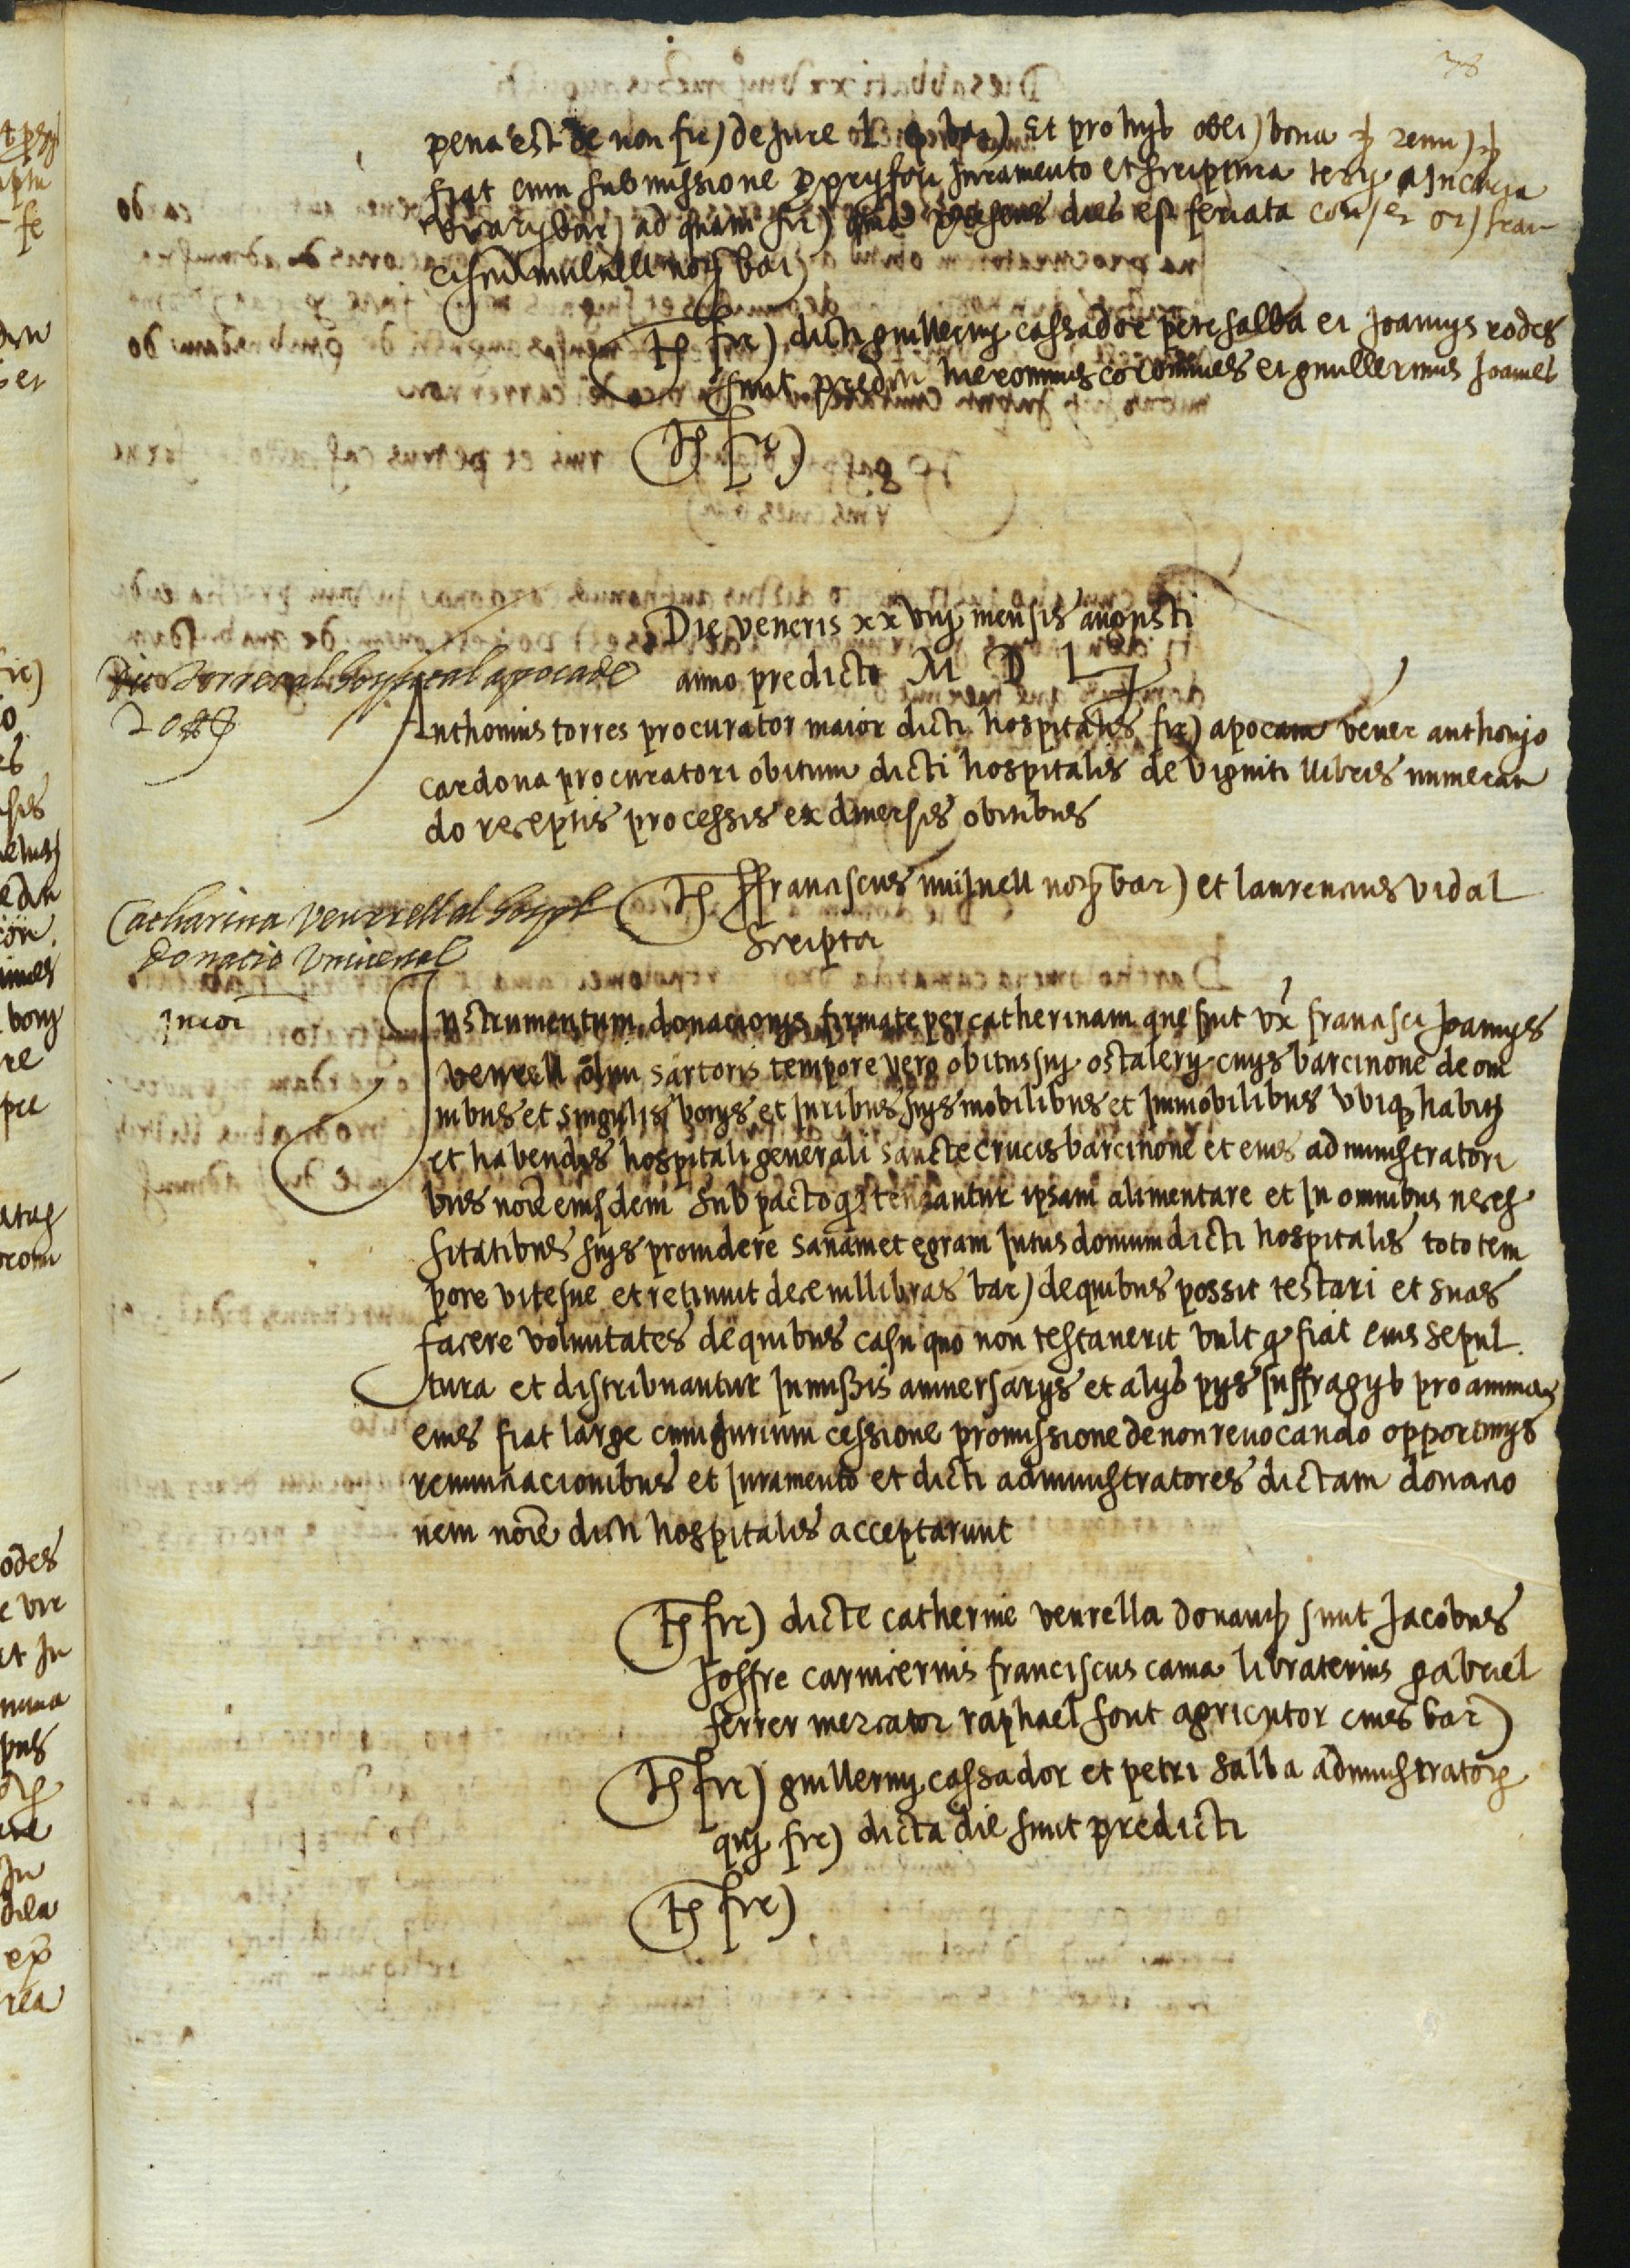 78
pena est de non fir) de jure et pro hijs obli) bona renu)
fiat cum submissione proprij fori juramento et scriptura tercij a Incuria
vicarij bar) ad quam fir) presens dies est feriata cor) et or) fran
cischum mulnell not bar)
Ts fir) dicti guillermj cassador pere salba et Joannis rodes
sunt predicti hieronimus coromines et guillermus Joanes
Ts fir)
Die veneris xxviiij mensis augusti
anno predicto M D L j
torres al hospital apoca de
20 ll
Anthonius torres procurator maior dicti hospitalis fir) apocam vener anthonjo
cardona procuratori obitum dicti hospitalis de viginti llibris numeran
do receptis processis ex diversis obitibus
Ts ffranciscus munell not bar) et laurencius vidal
scriptor
Catharina Venrrell al hospl
Donatio Universal
Instrumentum donacionis firmate per catherinam que fuit vx francisci Joannis
venrell olim sartoris tempore vero obitus suj ostalerij civis barcinone de om
nibus et singulis bonis et juribus suis mobilibus et Immobilibus vbiq habitis
et habendis hospitali generali sancte crucis barcinone et eius administratori
bus noie eiusdem sub pacto q teneantur ipsam alimentare et In omnibus neces
sitatibus suis providere sanam et egram Intus domum dicti hospitalis toto tem
pore vite sue et retinuit decem llibras bar) de quibus possit testari et suas
facere voluntates de quibus casu quo non testaverit vult q fiat eius sepul
tura et distribuantur In missis aniversarijs et alijs pijs suffragijs pro anima
eius fiat large cum jurium cessione promissione de non revocando opportunis
renunciacionibus et juramento et dicti administratores dictam donacio
nem noie dicti hospitalis acceptarunt
Ts fir) dicte catherine venrella donantis sunt Jacobus
Joffre carnicerius franciscus cama libraterius gabriel
ferrer mercator raphael font agricultor cives bar)
Ts fir) guillermj cassador et petri salba administrator
qui fir) dicta die sunt predicti
Ts fir)